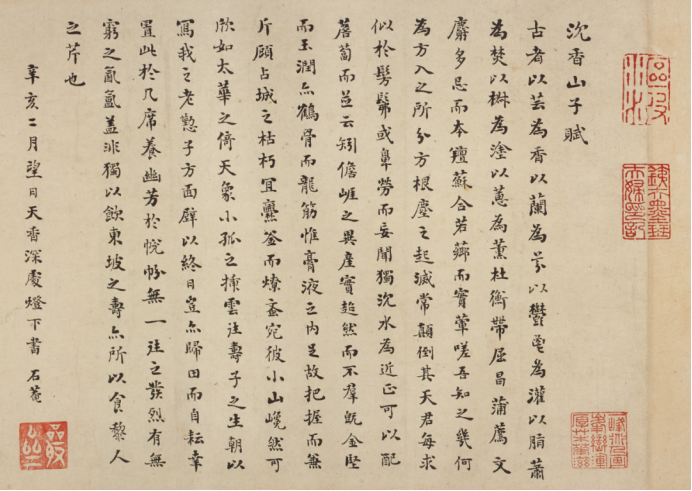 沉香山子賦
古者以芸為香以蘭為芬以鬱鬯為灌以脂蕭
為焚以椒為塗以蕙為薰杜衡帶屈昌蒲薦文
麝多忌而本羶蘇合若薌而實葷嗟吾知之幾何
為六入之所分方根塵之起滅常顛倒其天君每求
似於髣髴或鼻勞而妄聞獨沉水為近正可以配
薝蔔而並云矧儋崖之異產實超然而不羣既金堅
而玉潤亦鶴骨而龍筋惟膏液之內足故把握而兼
斤顧占城之枯朽宜爨釜而燎蚉宛彼小山巉然可
欣如太華之倚天象小孤之插雲往壽子之生朝以
寫我之老懃子方面壁以終日豈亦歸田而自耘幸
置此於几席養幽芳於帨帉無一往之發烈有無
窮之氤氳蓋非獨以飲東坡之壽亦所以食黎人
之芹也
辛亥二月望日天香深處燈下書 石菴